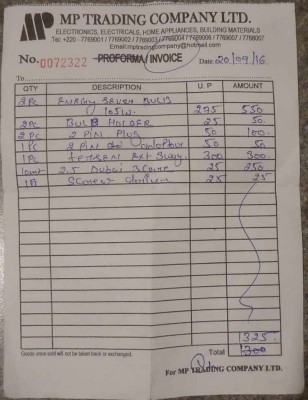 MP MP TRADING COMPANY LTD.
ELECTRONICS, ELECTRICALS, HOME APPLIANCES, BUILDING MATERIALS
Tel: +220 - 7769001 / 7769002 / 7769003 / 7769004 / 7769006 / 7769007
Email:mptradingcompany@hotmail.com
No. 0072322 PROFORMA/ INVOICE Date: 20/09/16
To
QTY DESCRIPTION U. P AMOUNT
2Pc Energy Saver Bulb
105W 275 550
2Pc Bulb Holder 25 50
2Pc 2 Pin Plug 50 100
1Pc 2 Pin 50 50
1Pc Ext 300 300
10mt 2.5 Dubai 25 250
1P Screw Driver 25 25
1325
Total 1300
Goods once sold will not be taken back or exchanged.
For MP TRADING COMPANY LTD.